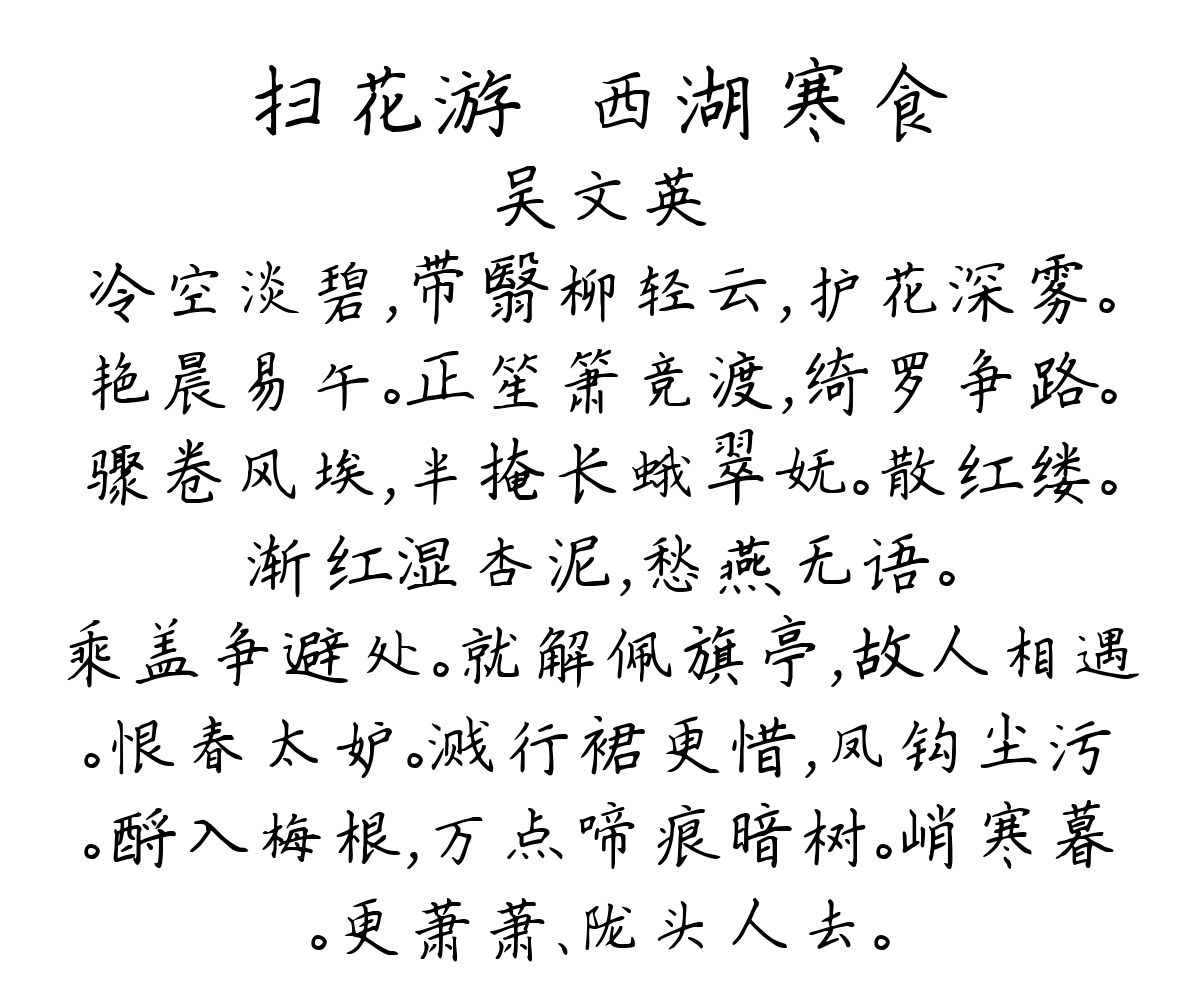 扫花游 西湖寒食
吴文英
冷空淡碧,带翳柳轻云,护花深雾。
艳晨易午。正笙箫竞渡,绮罗争路。
骤卷风埃,半掩长蛾翠妩。散红缕。
渐红湿杏泥,愁燕无语。
乘盖争避处。就解佩旗亭,故人相遇
。恨春太妒。溅行裙更惜,凤钩尘污
。酹入梅根,万点啼痕暗树。峭寒暮
。更萧萧、陇头人去。